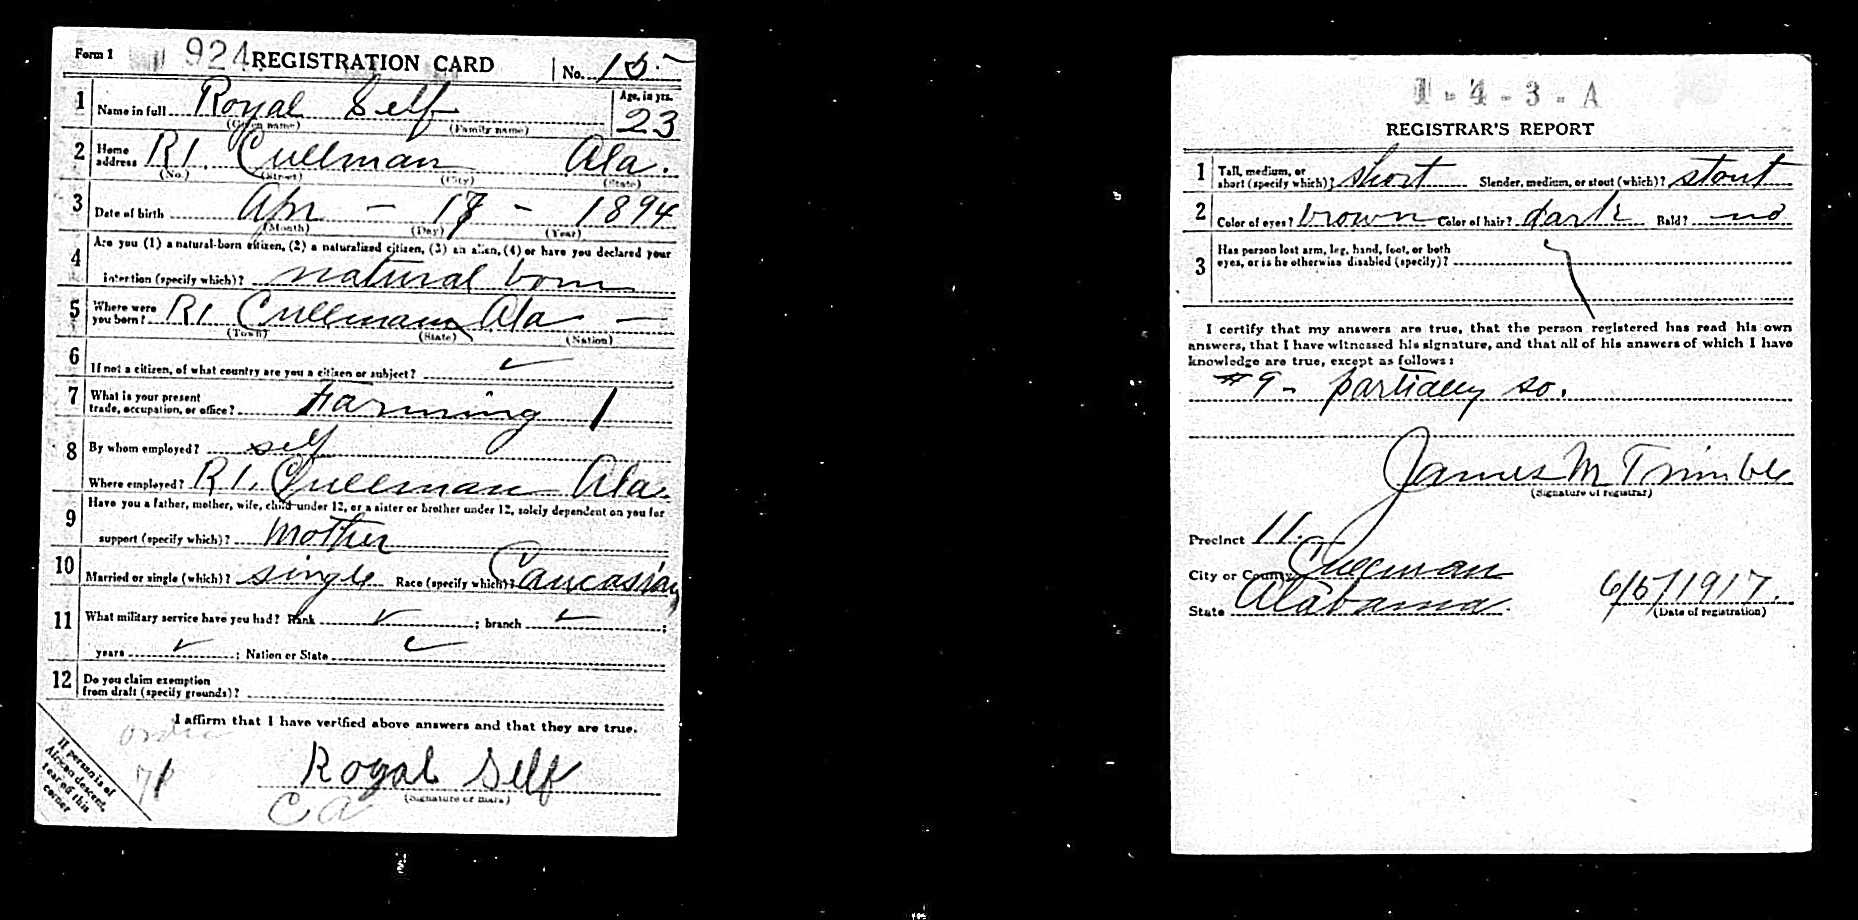 Form 1 924 REGISTRATION CARD No. 15
1 Name in full Royal Self Age, in yrs. 23
(Given name) (Family name)
2 Home address R1. Cullman Ala.
(No.) (Street) (City) (State)
3 Date of birth Apr - 17 - 1894
(Month) (Day) (Year)
4 Are you (1) a natural-born citizen, (2) a naturalized citizen, (3) an alien, (4) or have you declared your
intention (specify which)? natural born
5 Where were you born? R1 Cullman Ala -
(Town) (State) (Nation)
6 If not a citizen, of what country are you a citizen or subject? ✓
7 What is your present trade, occupation, or office? Farming 1
8 By whom employed? self
Where employed? R1. Cullman Ala.
9 Have you a father, mother, wife, child under 12, or a sister or brother under 12, solely dependent on you for
support (specify which)? Mother
10 Married or single (which)? single Race (specify which)? Caucasian
11 What military service have you had? Rank ✓ ; branch ✓ ;
years ✓ ; Nation or State ✓
12 Do you claim exemption
from draft (specify grounds)?
I affirm that I have verified above answers and that they are true.
Royal Self
(Signature or mark)
If person is of
African descent,
tear off this
corner
1-4-3-A
REGISTRAR'S REPORT
1 Tall, medium, or short (specify which)? short Slender, medium, or stout (which)? stout
2 Color of eyes? brown Color of hair? dark Bald? no
3 Has person lost arm, leg, hand, foot, or both
eyes, or is he otherwise disabled (specify)?
I certify that my answers are true, that the person registered has read his own
answers, that I have witnessed his signature, and that all of his answers of which I have
knowledge are true, except as follows:
#9- partially so.
James M Trimble
(Signature of registrar)
Precinct 11.
City or County Cullman
State Alabama. 6/5/1917.
(Date of registration)